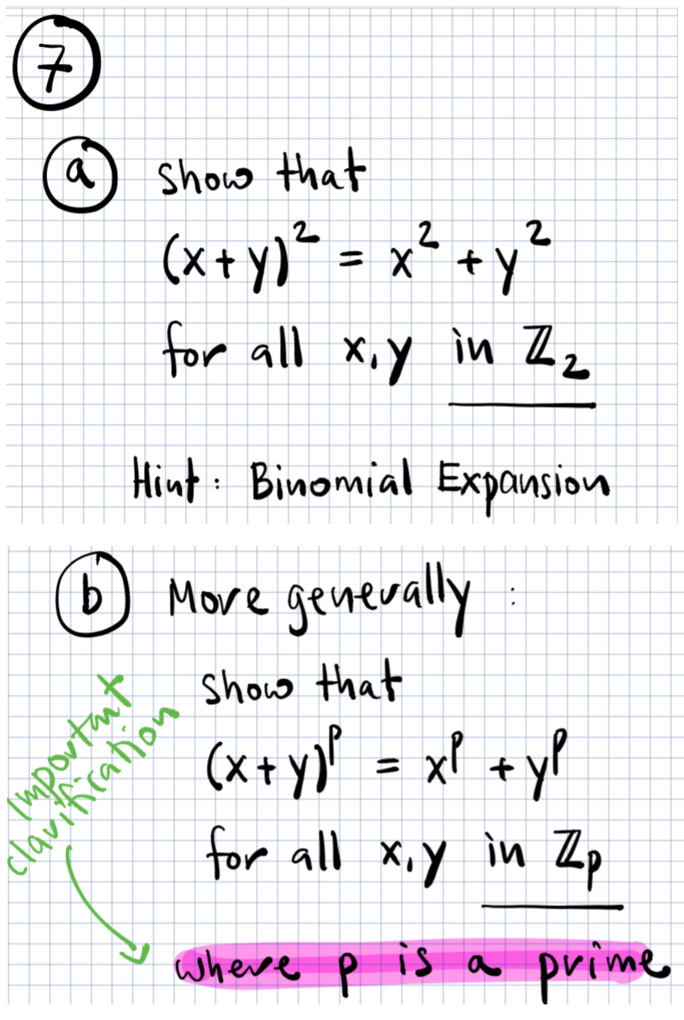 7
a show that
(x+y)² = x² + y²
for all x,y in ℤ₂
Hint: Binomial Expansion
b More generally:
show that
(x+y)ᵖ = xᵖ + yᵖ
for all x,y in ℤₚ
Important
clarification
where p is a prime